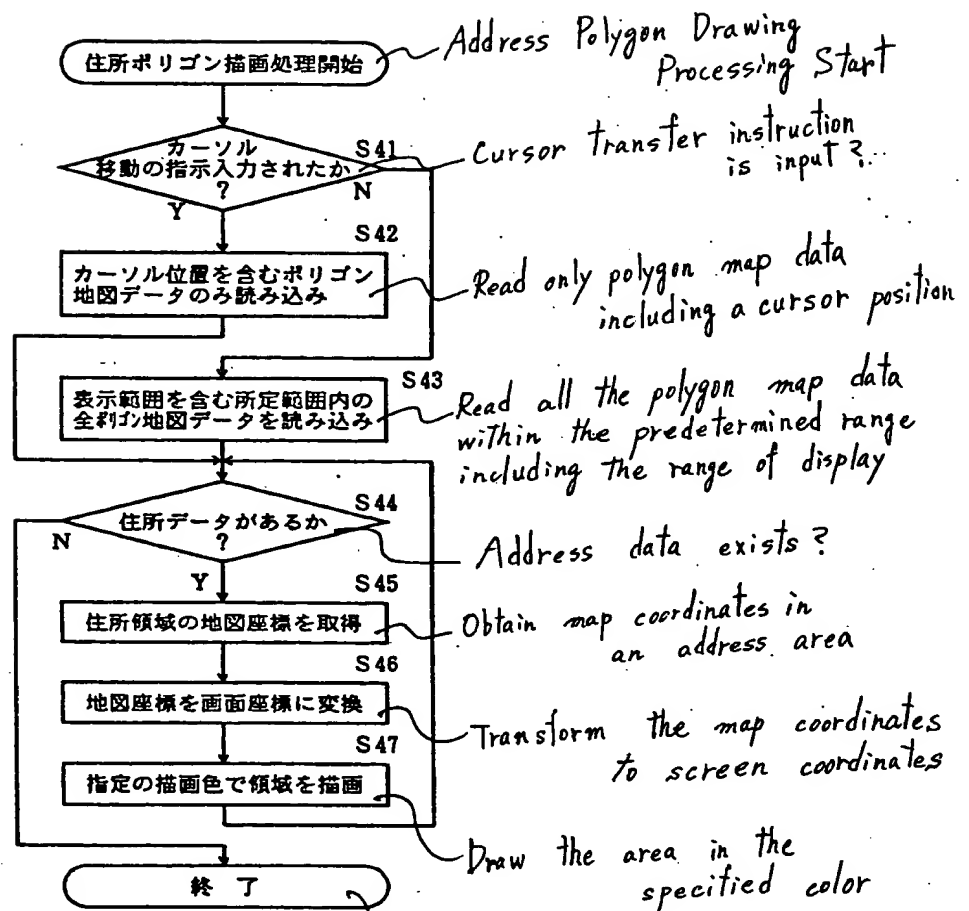 住所ポリゴン描画処理開始
Address Polygon Drawing
Processing Start
カーソル
移動の指示入力されたか
?
S41
Y
N
Cursor transfer instruction
is input?
S42
カーソル位置を含むポリゴン
地図データのみ読み込み
Read only polygon map data
including a cursor position
S43
表示範囲を含む所定範囲内の
全ポリゴン地図データを読み込み
Read all the polygon map data
within the predetermined range
including the range of display
S44
住所データがあるか
?
N
Y
Address data exists?
S45
住所領域の地図座標を取得
Obtain map coordinates in
an address area
S46
地図座標を画面座標に変換
Transform the map coordinates
to screen coordinates
S47
指定の描画色で領域を描画
Draw the area in the
specified color
終了